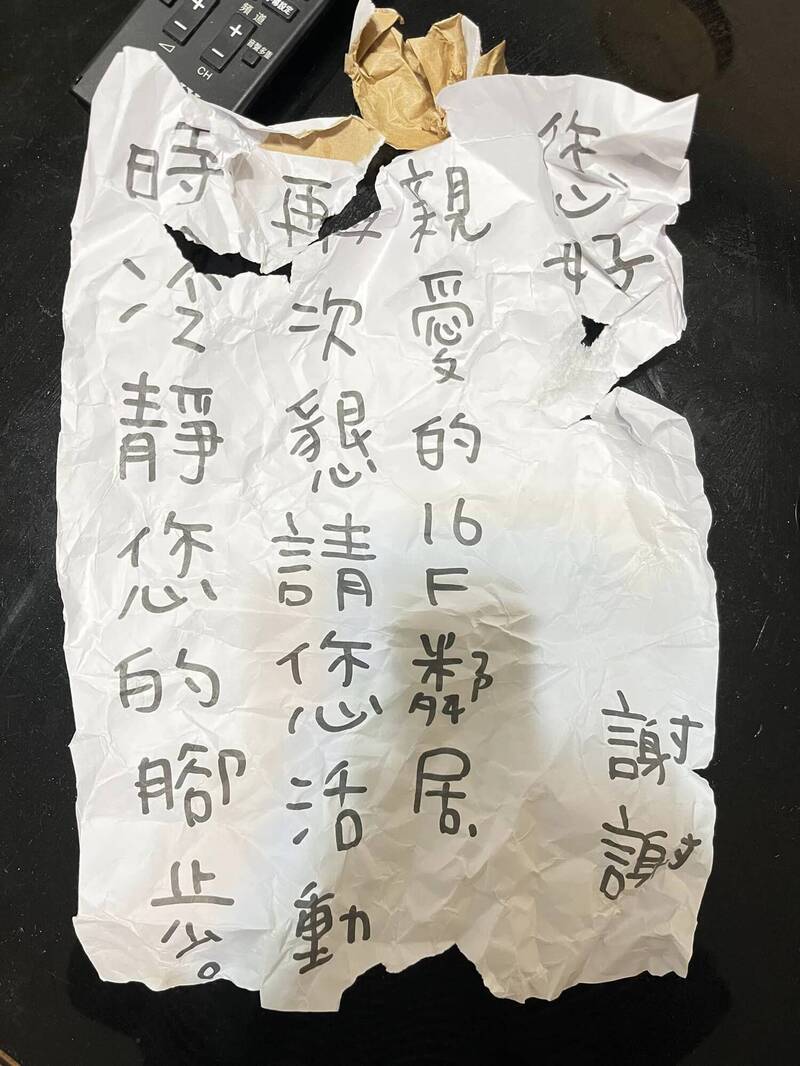 您好
親愛的16F鄰居.
再次懇請您活動
時冷靜您的腳步。
謝謝
頻道
音聲多重
CH